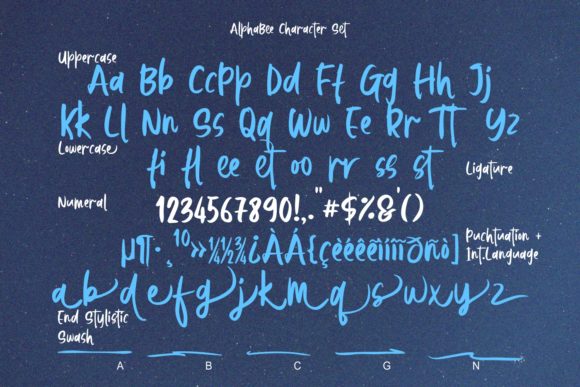 AlphaBee Character Set
Uppercase
Aa Bb CcPp Dd Ff Gg Hh Jj
Kk Ll Nn Ss Qq Ww Ee Rr TT Yz
Lowercase
fi fl ee et oo rr ss st
Ligature
Numeral
1234567890!,."#$%&'()
Puchtuation +
Int.Language
µ¶·¸¹º»¼½¾¿ÀÁ{çèéêëìíîïðñò]
abdefgjkmqswxyz
End Stylistic
Swash
A B C G N